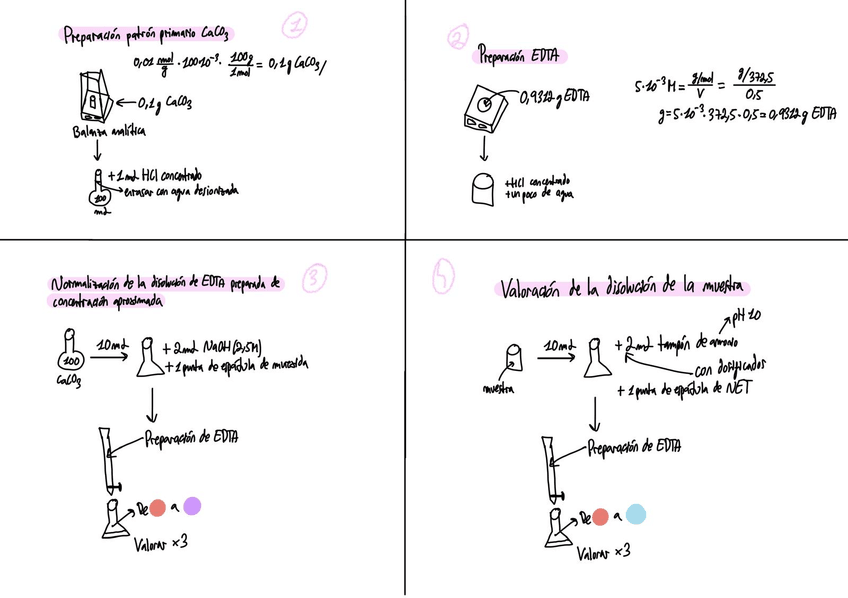 Preparación patrón primario CaCO₃
1
0,01 mmol/g · 100·10⁻³ · 100g/1mol = 0,1g CaCO₃/
0,1g CaCO₃
Balanza analítica
+ 1mL HCl concentrado
enrasar con agua desionizada
100
mL
2
Preparación EDTA
0,9312g EDTA
5·10⁻³ M = g/mol / V = g/372,5 / 0,5
g = 5·10⁻³ · 372,5 · 0,5 = 0,9312g EDTA
+HCl concentrado
+un poco de agua
Normalización de la disolución de EDTA preparada de
concentración aproximada
3
100
CaCO₃
10mL
+ 2mL NaOH (2,5N)
+ 1 punta de espátula de
Preparación de EDTA
De a
Valorar x3
4
Valoración de la disolución de la muestra
pH 10
muestra
10mL
+ 2mL tampón de amonio
con dosificador
+ 1 punta de espátula de NET
Preparación de EDTA
De a
Valorar x3